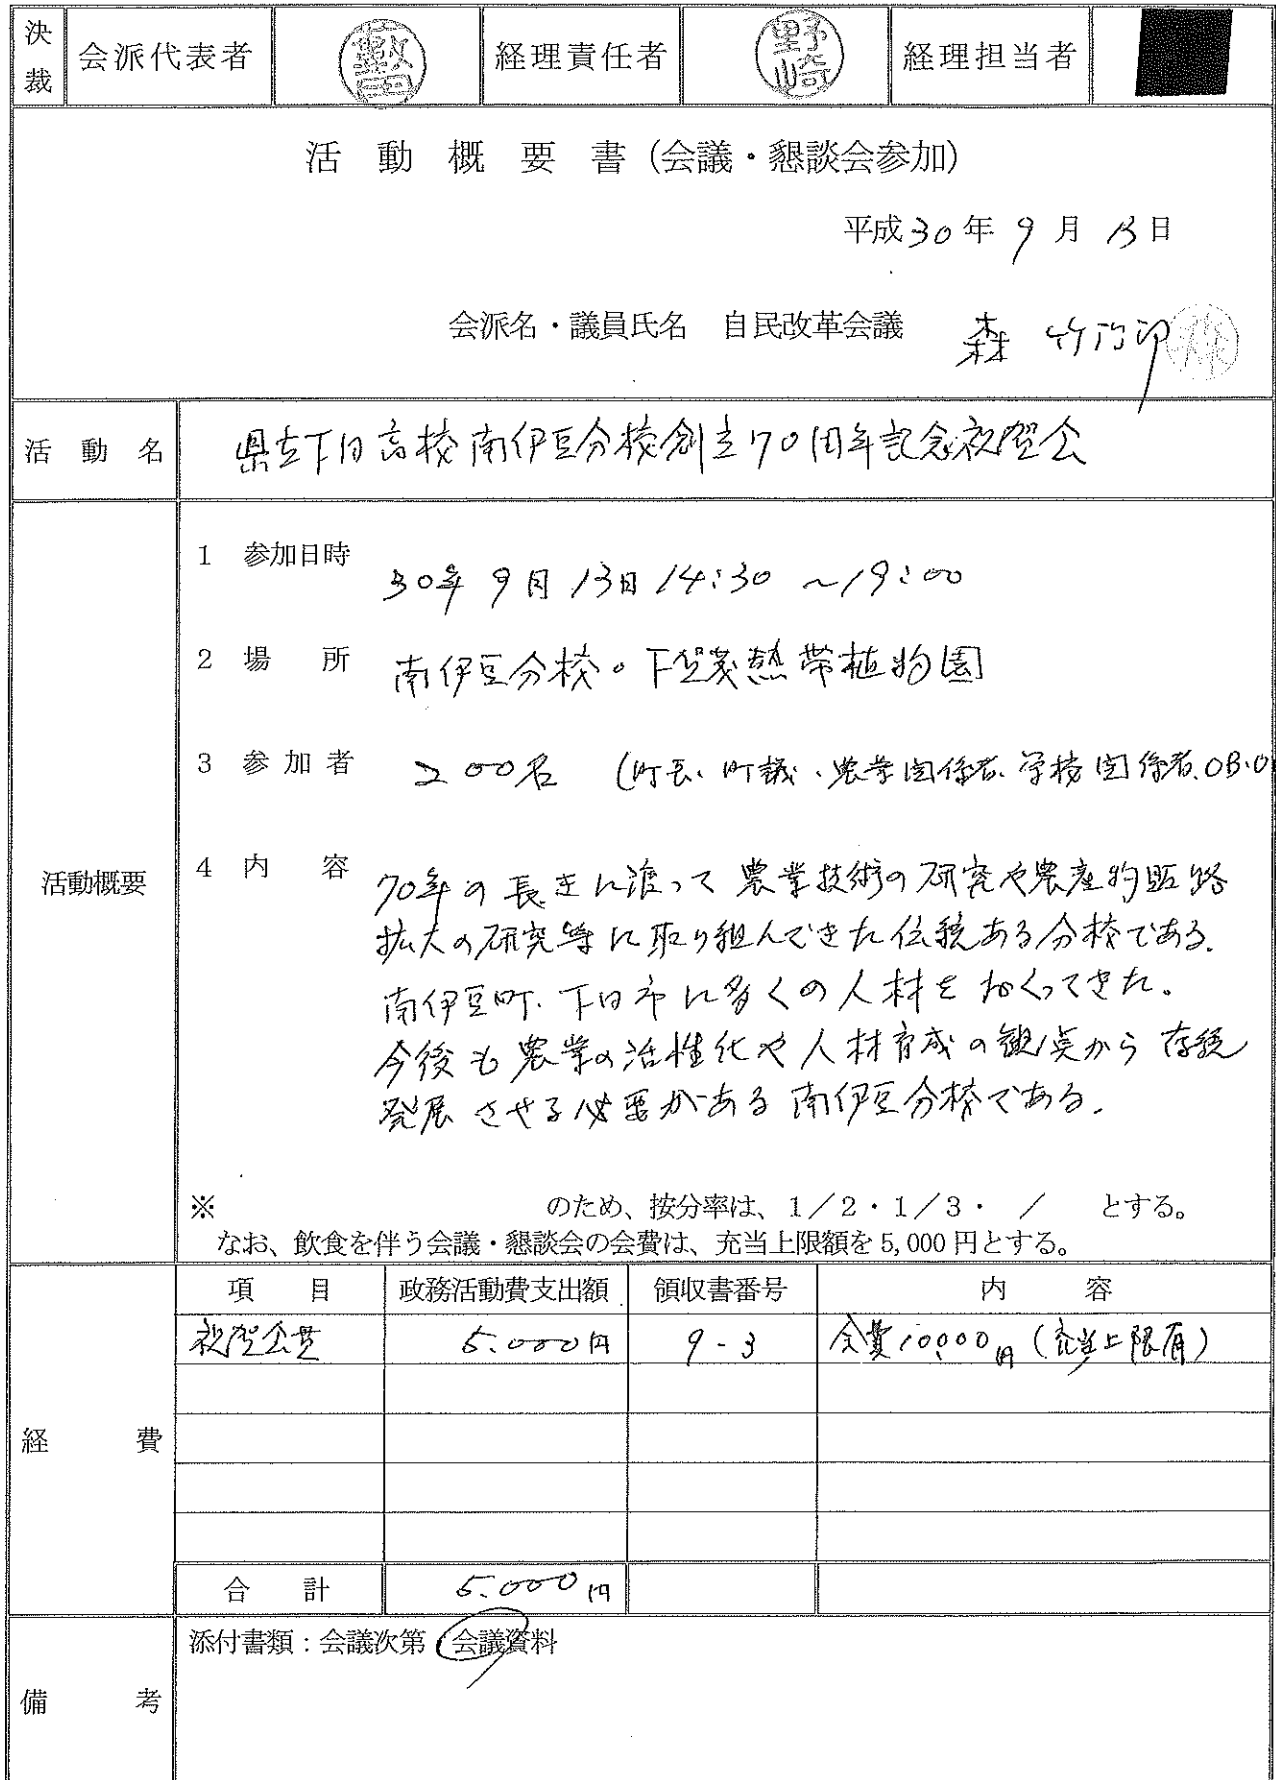 決裁 会派代表者 藪田 経理責任者 野崎 経理担当者
活動概要書(会議・懇談会参加)
平成30年9月13日
会派名・議員氏名 自民改革会議 森 竹治郎
活動名 県立下田高校南伊豆分校創立70周年記念祝賀会
活動概要
1 参加日時 30年9月13日14:30~19:00
2 場所 南伊豆分校。下賀茂熱帯植物園
3 参加者 200名 (町長、町議、農業関係者、学校関係者、OB・O
4 内容 70年の長きに渡って農業技術の研究や農産物販路
拡大の研究等に取り組んできた伝統ある分校である。
南伊豆町、下田市に多くの人材をおくってきた。
今後も農業の活性化や人材育成の観点から存続
発展させる必要がある南伊豆分校である。
※ のため、按分率は、1/2・1/3・ / とする。
なお、飲食を伴う会議・懇談会の会費は、充当上限額を5,000円とする。
経費
項目 政務活動費支出額 領収書番号 内容
祝賀会費 5.000円 9-3 会費10,000円(充当上限有)
合計 5.000円
備考
添付書類:会議次第・会議資料